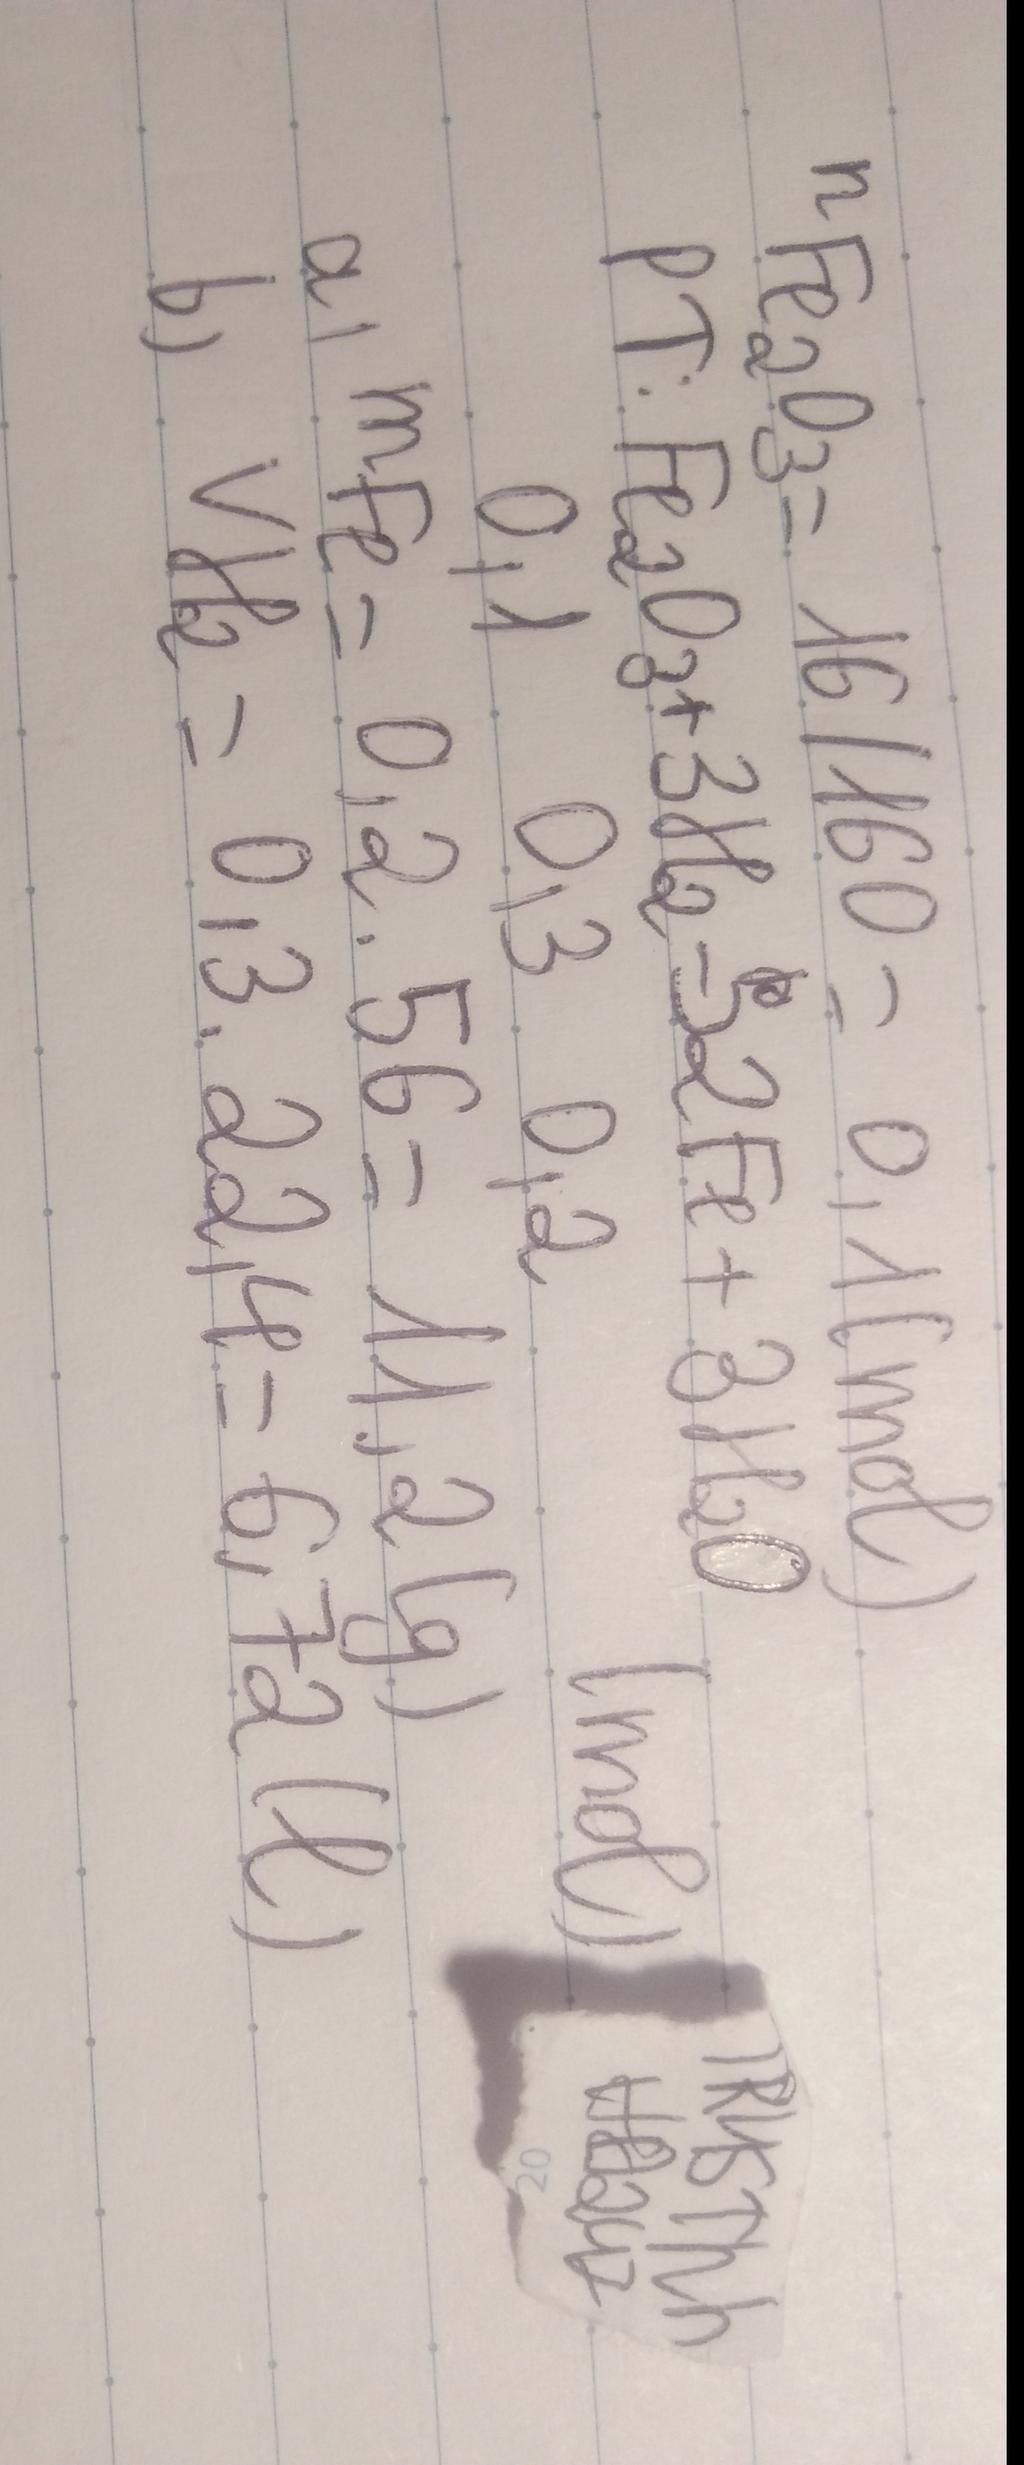 nFe2O3 = 16/160 = 0,1(mol)
PT: Fe2O3 + 3H2 -> 2Fe + 3H2O
0,1 0,3 0,2 (mol)
a, mFe = 0,2. 56 = 11,2 (g)
b) VH2 = 0,3. 22,4 = 6,72 (l)
20